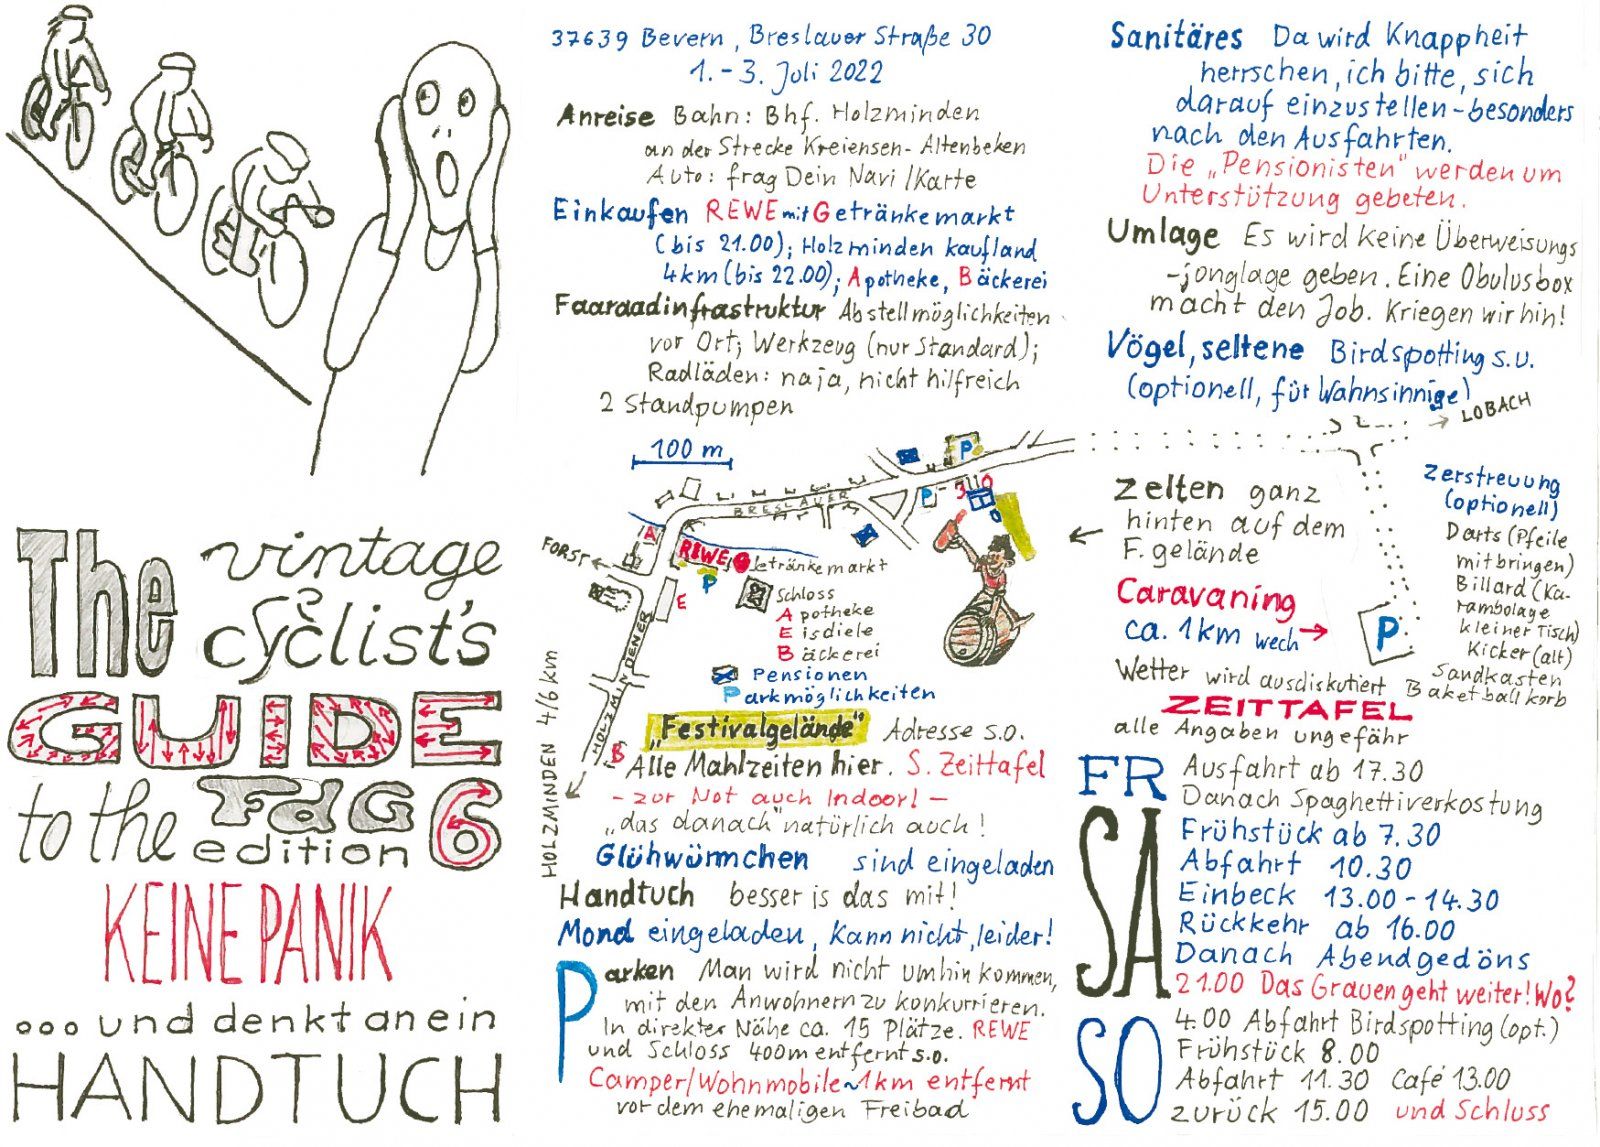 The
vintage
cyclist's
GUIDE
to the FdG
edition 6
KEINE PANIK
... und denkt an ein
HANDTUCH
37639 Bevern, Breslauer Straße 30
1. - 3. Juli 2022
Anreise Bahn: Bhf. Holzminden
an der Strecke Kreiensen-Altenbeken
Auto: frag Dein Navi/Karte
Einkaufen REWE mit Getränkemarkt
(bis 21.00); Holzminden kaufland
4km (bis 22.00); Apotheke, Bäckerei
Faaraadinfrastruktur Abstellmöglichkeiten
vor Ort; Werkzeug (nur Standard);
Radläden: naja, nicht hilfreich
2 Standpumpen
100 m
BRESLAUER
P
P
30
FORST
A
REWE Getränkemarkt
P
E
Schloss
Apotheke
Eisdiele
Bäckerei
Pensionen
Parkmöglichkeiten
HOLZMINDENER
B
HOLZMINDEN 4/6 km
"Festivalgelände" Adresse s.o.
Alle Mahlzeiten hier. S. Zeittafel
- zur Not auch Indoor! -
"das danach" natürlich auch!
Glühwürmchen sind eingeladen
Handtuch besser is das mit!
Mond eingeladen, kann nicht, leider!
Parken Man wird nicht umhin kommen,
mit den Anwohnern zu konkurrieren.
In direkter Nähe ca. 15 Plätze. REWE
und Schloss 400m entfernt s.o.
Camper/Wohnmobile ~1km entfernt
vor dem ehemaligen Freibad
Sanitäres Da wird Knappheit
herrschen, ich bitte, sich
darauf einzustellen - besonders
nach den Ausfahrten.
Die "Pensionisten" werden um
Unterstützung gebeten.
Umlage Es wird keine Überweisungs
-jonglage geben. Eine Obulusbox
macht den Job. Kriegen wir hin!
Vögel, seltene Birdspotting s.u.
(optionell, für Wahnsinnige)
LOBACH
Zelten ganz
hinten auf dem
F.gelände
Caravaning
ca. 1km wech
P
Zerstreuung
(optionell)
Darts (Pfeile
mitbringen)
Billard (Ka-
rambolage
kleiner Tisch)
Kicker (alt)
Sandkasten
Baketballkorb
Wetter wird ausdiskutiert
ZEITTAFEL
alle Angaben ungefähr
FR Ausfahrt ab 17.30
Danach Spaghettiverkostung
SA Frühstück ab 7.30
Abfahrt 10.30
Einbeck 13.00 - 14.30
Rückkehr ab 16.00
Danach Abendgedöns
21.00 Das Grauen geht weiter! Wo?
SO 4.00 Abfahrt Birdspotting (opt.)
Frühstück 8.00
Abfahrt 11.30 Café 13.00
zurück 15.00 und Schluss